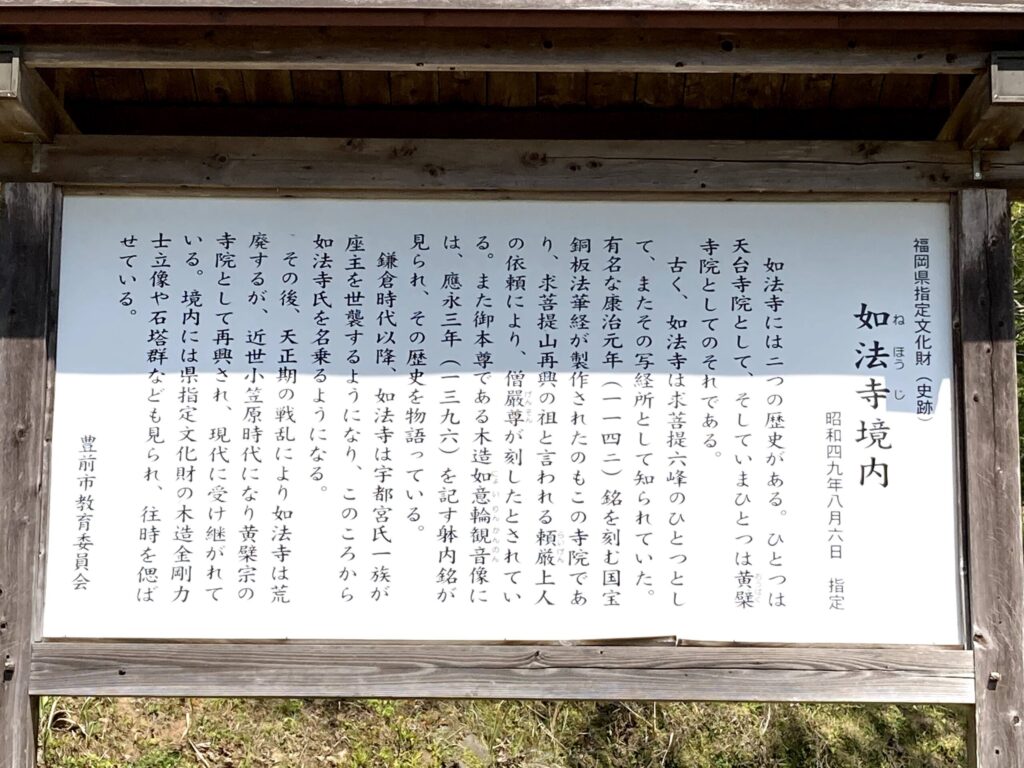 福岡県指定文化財（史跡）
如法寺境内
ねほうじ
昭和四九年八月六日　指定
如法寺には二つの歴史がある。ひとつは
天台寺院として、そしていまひとつは黄檗
おうばく
寺院としてのそれである。
古く、如法寺は求菩提六峰のひとつとし
て、またその写経所として知られていた。
有名な康治元年（一一四二）銘を刻む国宝
銅板法華経が製作されたのもこの寺院であ
り、求菩提山再興の祖と言われる頼厳上人
らいげん
の依頼により、僧厳尊が刻したとされてい
げんそん
る。また御本尊である木造如意輪観音像に
にょいりんかんのん
は、應永三年（一三九六）を記す躰内銘が
見られ、その歴史を物語っている。
鎌倉時代以降、如法寺は宇都宮氏一族が
座主を世襲するようになり、このころから
如法寺氏を名乗るようになる。
その後、天正期の戦乱により如法寺は荒
廃するが、近世小笠原時代になり黄檗宗の
寺院として再興され、現代に受け継がれて
いる。境内には県指定文化財の木造金剛力
士立像や石塔群なども見られ、往時を偲ば
せている。
豊前市教育委員会